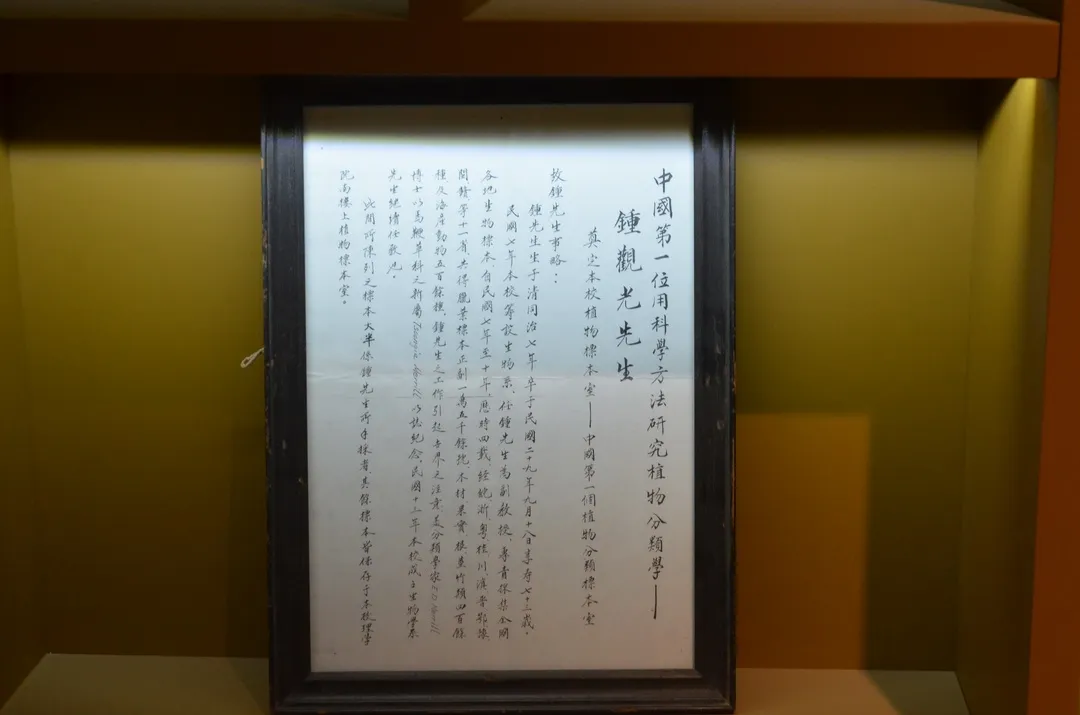 中國第一位用科學方法研究植物分類學——
鍾觀光先生
奠定本校植物標本室——中國第一個植物分類標本室
故鍾先生事略：
鍾先生生于清同治七年卒于民國二十九年九月十八日享壽七十三歲。
民國七年本校籌設生物系，任鍾先生為副教授，專責採集全國
各地生物標本，自民國七年至十年，歷時四載，經皖浙粵桂川滇晉鄂豫
閩贛等十一省，共得臘葉標本正副一萬五千餘號，木材，果實，根，莖竹類四百餘
種及海產動物五百餘種，鍾先生之工作引起各界之注意，美分類學家 Merrill
博士以馬鞭草科之新屬 Tsoongia Merrill 以誌紀念，民國十三年本校成立生物學系
先生繼續任教焉。
此間所陳列之標本大半係鍾先生所手採者，其餘標本皆保存于本校理學
院南樓上植物標本室。